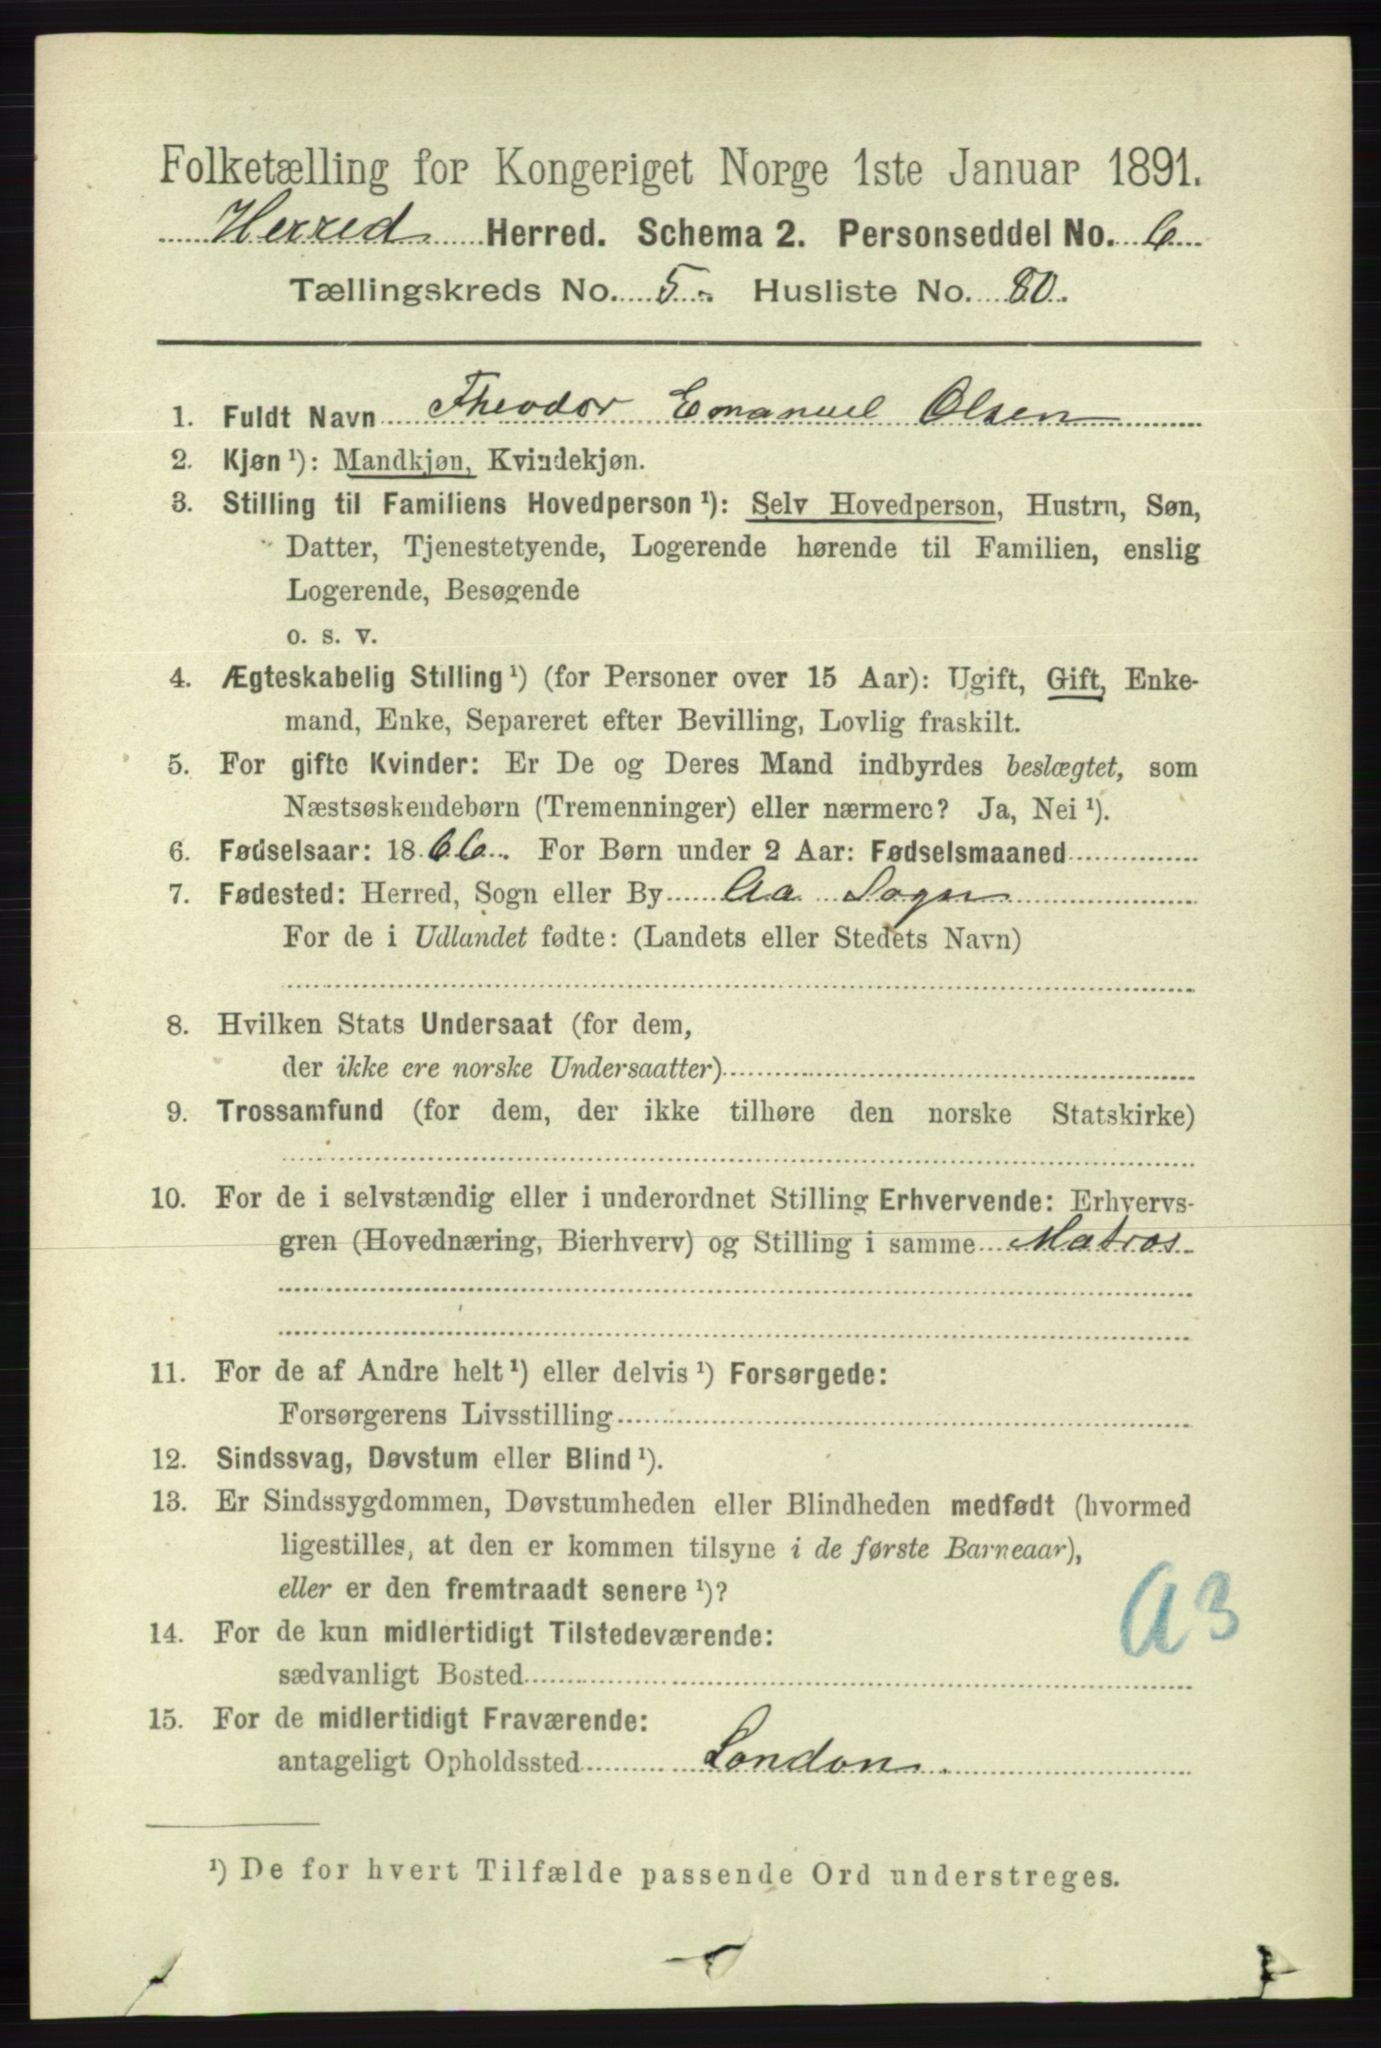 Folketælling for Kongeriget Norge 1ste Januar 1891.
Herred Herred. Schema 2. Personseddel No. 6
Tællingskreds No. 5 Husliste No. 80.
1. Fuldt Navn Theodor Emanuel Olsen
2. Kjøn¹): Mandkjøn, Kvindekjøn.
3. Stilling til Familiens Hovedperson¹): Selv Hovedperson, Hustru, Søn,
Datter, Tjenestetyende, Logerende hørende til Familien, enslig
Logerende, Besøgende
o. s. v.
4. Ægteskabelig Stilling¹) (for Personer over 15 Aar): Ugift, Gift, Enke-
mand, Enke, Separeret efter Bevilling, Lovlig fraskilt.
5. For gifte Kvinder: Er De og Deres Mand indbyrdes beslægtet, som
Næstsøskendebørn (Tremenninger) eller nærmere? Ja, Nei¹).
6. Fødselsaar: 1866. For Børn under 2 Aar: Fødselsmaaned
7. Fødested: Herred, Sogn eller By Aa Sogn
For de i Udlandet fødte: (Landets eller Stedets Navn)
8. Hvilken Stats Undersaat (for dem,
der ikke ere norske Undersaatter)
9. Trossamfund (for dem, der ikke tilhøre den norske Statskirke)
10. For de i selvstændig eller i underordnet Stilling Erhvervende: Erhvervs-
gren (Hovednæring, Bierhverv) og Stilling i samme Matros
11. For de af Andre helt¹) eller delvis¹) Forsørgede:
Forsørgerens Livsstilling
12. Sindssvag, Døvstum eller Blind¹).
13. Er Sindssygdommen, Døvstumheden eller Blindheden medfødt (hvormed
ligestilles, at den er kommen tilsyne i de første Barneaar),
eller er den fremtraadt senere¹)?
A3
14. For de kun midlertidigt Tilstedeværende:
sædvanligt Bosted
15. For de midlertidigt Fraværende:
antageligt Opholdssted London.
¹) De for hvert Tilfælde passende Ord understreges.